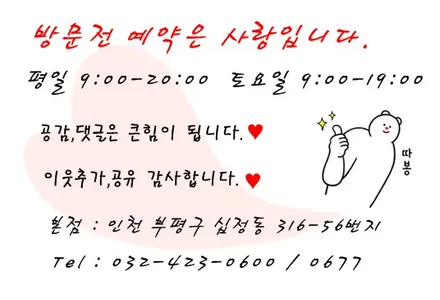 방문전 예약은 사랑입니다.
평일 9:00-20:00 토요일 9:00-19:00
공감,댓글은 큰힘이 됩니다.♥
이웃추가,공유 감사합니다.♥
따봉
본점 : 인천 부평구 십정동 316-56번지
Tel : 032-423-0600 / 0677